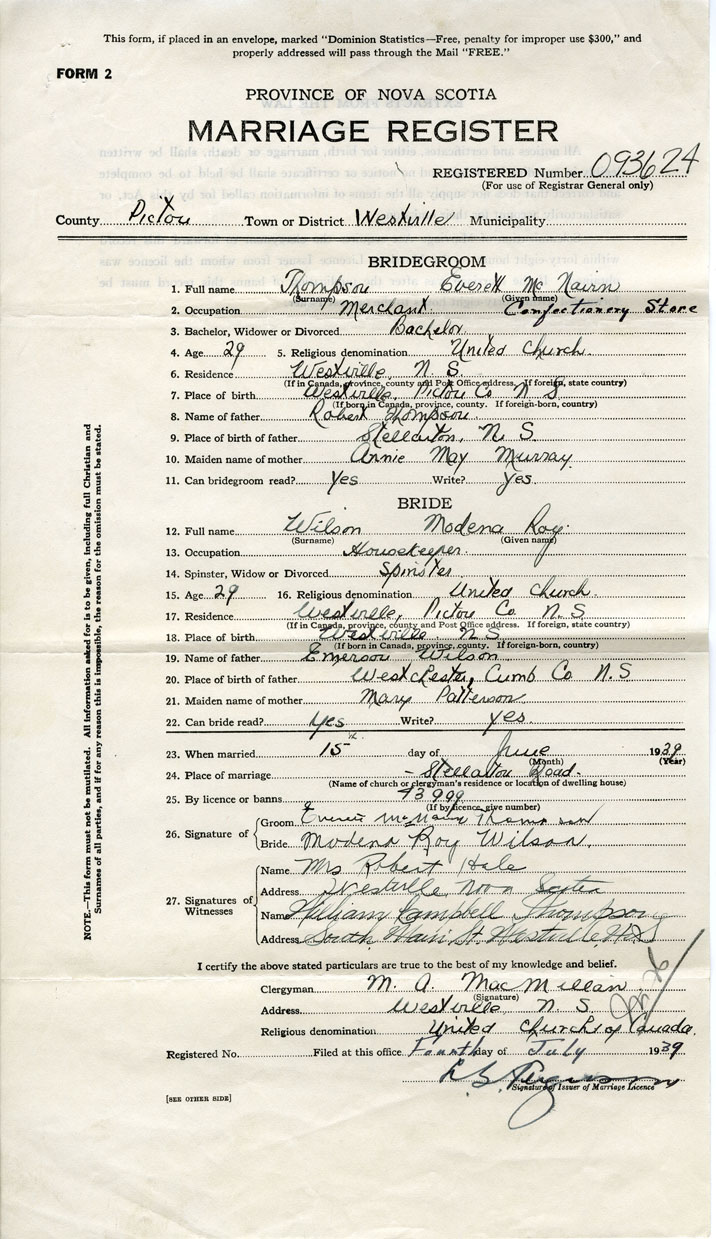 This form, if placed in an envelope, marked "Dominion Statistics—Free, penalty for improper use $300," and
properly addressed will pass through the Mail "FREE."
FORM 2
PROVINCE OF NOVA SCOTIA
MARRIAGE REGISTER
REGISTERED Number 093624
(For use of Registrar General only)
County Pictou Town or District Westville Municipality
BRIDEGROOM
1. Full name Thompson Everett Mc Nairn
(Surname) (Given name)
2. Occupation Merchant Confectionery Store
3. Bachelor, Widower or Divorced Bachelor
4. Age 29 5. Religious denomination United Church.
6. Residence Westville, N S.
(If in Canada, province, county and Post Office address. If foreign, state country)
7. Place of birth Westville, Pictou Co N S
(If born in Canada, province, county. If foreign-born, country)
8. Name of father Robert Thompson
9. Place of birth of father Stellarton, N. S.
10. Maiden name of mother Annie May Murray
11. Can bridegroom read? Yes Write? Yes.
BRIDE
12. Full name Wilson Modena Roy
(Surname) (Given name)
13. Occupation Housekeeper.
14. Spinster, Widow or Divorced Spinster
15. Age 29 16. Religious denomination United Church.
17. Residence Westville, Pictou Co. N. S.
(If in Canada, province, county and Post Office address. If foreign, state country)
18. Place of birth Westville N S
(If born in Canada, province, county. If foreign-born, country)
19. Name of father Emerson Wilson
20. Place of birth of father Westchester, Cumb Co N.S
21. Maiden name of mother Mary Patterson
22. Can bride read? Yes Write? Yes.
23. When married 15th day of June 1939
(Month) (Year)
24. Place of marriage - Stellarton Road.
(Name of church or clergyman's residence or location of dwelling house)
25. By licence or banns 43999
(If by licence, give number)
26. Signature of
Groom Everett McNairn Thompson
Bride Modena Roy Wilson.
27. Signatures of Witnesses
Name Mrs Robert Hale
Address Westville Nova Scotia
Name William Campbell Thompson
Address South Main St. Westville N.S
I certify the above stated particulars are true to the best of my knowledge and belief.
Clergyman M. A. MacMillan
(Signature)
Address Westville, N S.
Religious denomination United Church of Canada.
Registered No. Filed at this office Fourth day of July 1939
Signature of Issuer of Marriage Licence
[SEE OTHER SIDE]
NOTE.—This form must not be mutilated. All information asked for is to be given, including full Christian and
Surnames of all parties, and if for any reason this is impossible, the reason for the omission must be stated.